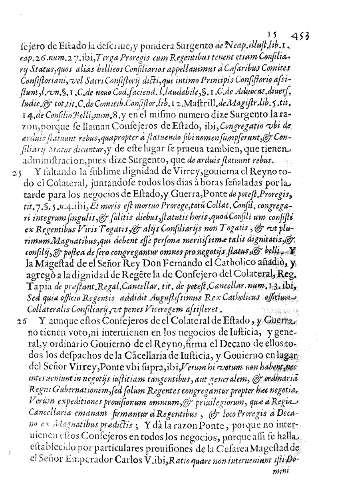 15 453
sejero de Estado la descriue, y pondera Surgento de Neap. illust. lib. 1.
cap. 26. num. 27. ibi, Terga Proregis cum Regentibus tenent etiam Consilia-
rij Status, quos alias bellicos Consiliarios appellauimus à Cæsaribus Comites
Consistoriani, vel Sacri Consistorij dicti, quia intimo Principis Consistorio assis-
tium, l. 7. §. 1. C. de nouo Cod. faciend. l. laudabile, §. 1. C. de Aduocat. diuers.
Iudic. & tot. tit. C. de Comitib. Consistor. lib. 12. Mastrill. de Magistr. lib. 5. tit.
14. de Consilio Belli, num. 8. y en el mismo numero dize Surgento la ra-
zon, porque se llaman Consejeros de Estado, ibi, Congregatio vbi de
arduis statuunt rebus, quapropter à statuendo sibi nomen sumpserunt, & Con-
siliarij Status dicuntur, y de este lugar se prueua tambien, que tienen
administracion, pues dize Surgento, que de arduis statuunt rebus.
25 Y faltando la sublime dignidad de Virrey, gouierna el Reyno to-
do el Colateral, juntandose todos los dias à horas señaladas por la
tarde para los negocios de Estado, y Guerra, Ponte de potest. Proregis,
tit. 7. §. 5. n. 4. ibi, Et maris est mortuo Prorege, totũ Collat. Consil. congrega-
ri integrum singulis, & solitis diebus, statutis horis, quod Consili um consistit
ex Regentibus Viris Togatis, & alijs Consiliarijs non Togatis, & vt plu-
rimum Magnatibus, qui debent esse persona meritissima talis dignitatis, &
consilij, & postea de sero congregantur omnes pro negotijs status, & belli. Y
la Magestad de el Señor Rey Don Fernando el Catholico añadiò, y
agregò a la dignidad de Regẽte la de Consejero del Colateral, Reg.
Tapia de præstant. Regal. Cancellar. tit. de potest. Cancellar. num. 13. ibi,
Sed quia officio Regentis addidit Augustissimus Rex Catholicus officium
Collateralis Consiliarij, vt penes Viceregem assisteret.
26 Y aunque estos Consejeros de el Colateral de Estado, y Guerra
no tienen voto, ni interuienen en los negocios de Iusticia, y gene-
ral, y ordinario Gouierno de el Reyno, firma el Decano de ellos to-
dos los despachos de la Cãcellaria de Iusticia, y Gouierno en lugar
del Señor Virrey, Ponte vbi supra, ibi, Verum hi votum non habent, nec
interueniunt in negotijs iustitiam tangentibus, aut generalem, & ordinariã
Regni Gubernationem, sed solum Regentes congregantur propter hæc negotia.
Verum expeditiones prouisiorum omnium, & priuilegiorum, quæ à Regia
Cancellaria emanant firmantur à Regentibus, & loco Proregis à Deca-
no ex Magnatibus prædictis. Y dà la razon Ponte, porque no inter-
uienen estos Consejeros en todos los negocios, porque assi se halla
establecido por particulares prouisiones de la Cesarea Magestad de
el Señor Emperador Carlos V. ibi, Ratio quare non interueniunt isti Do-
mini